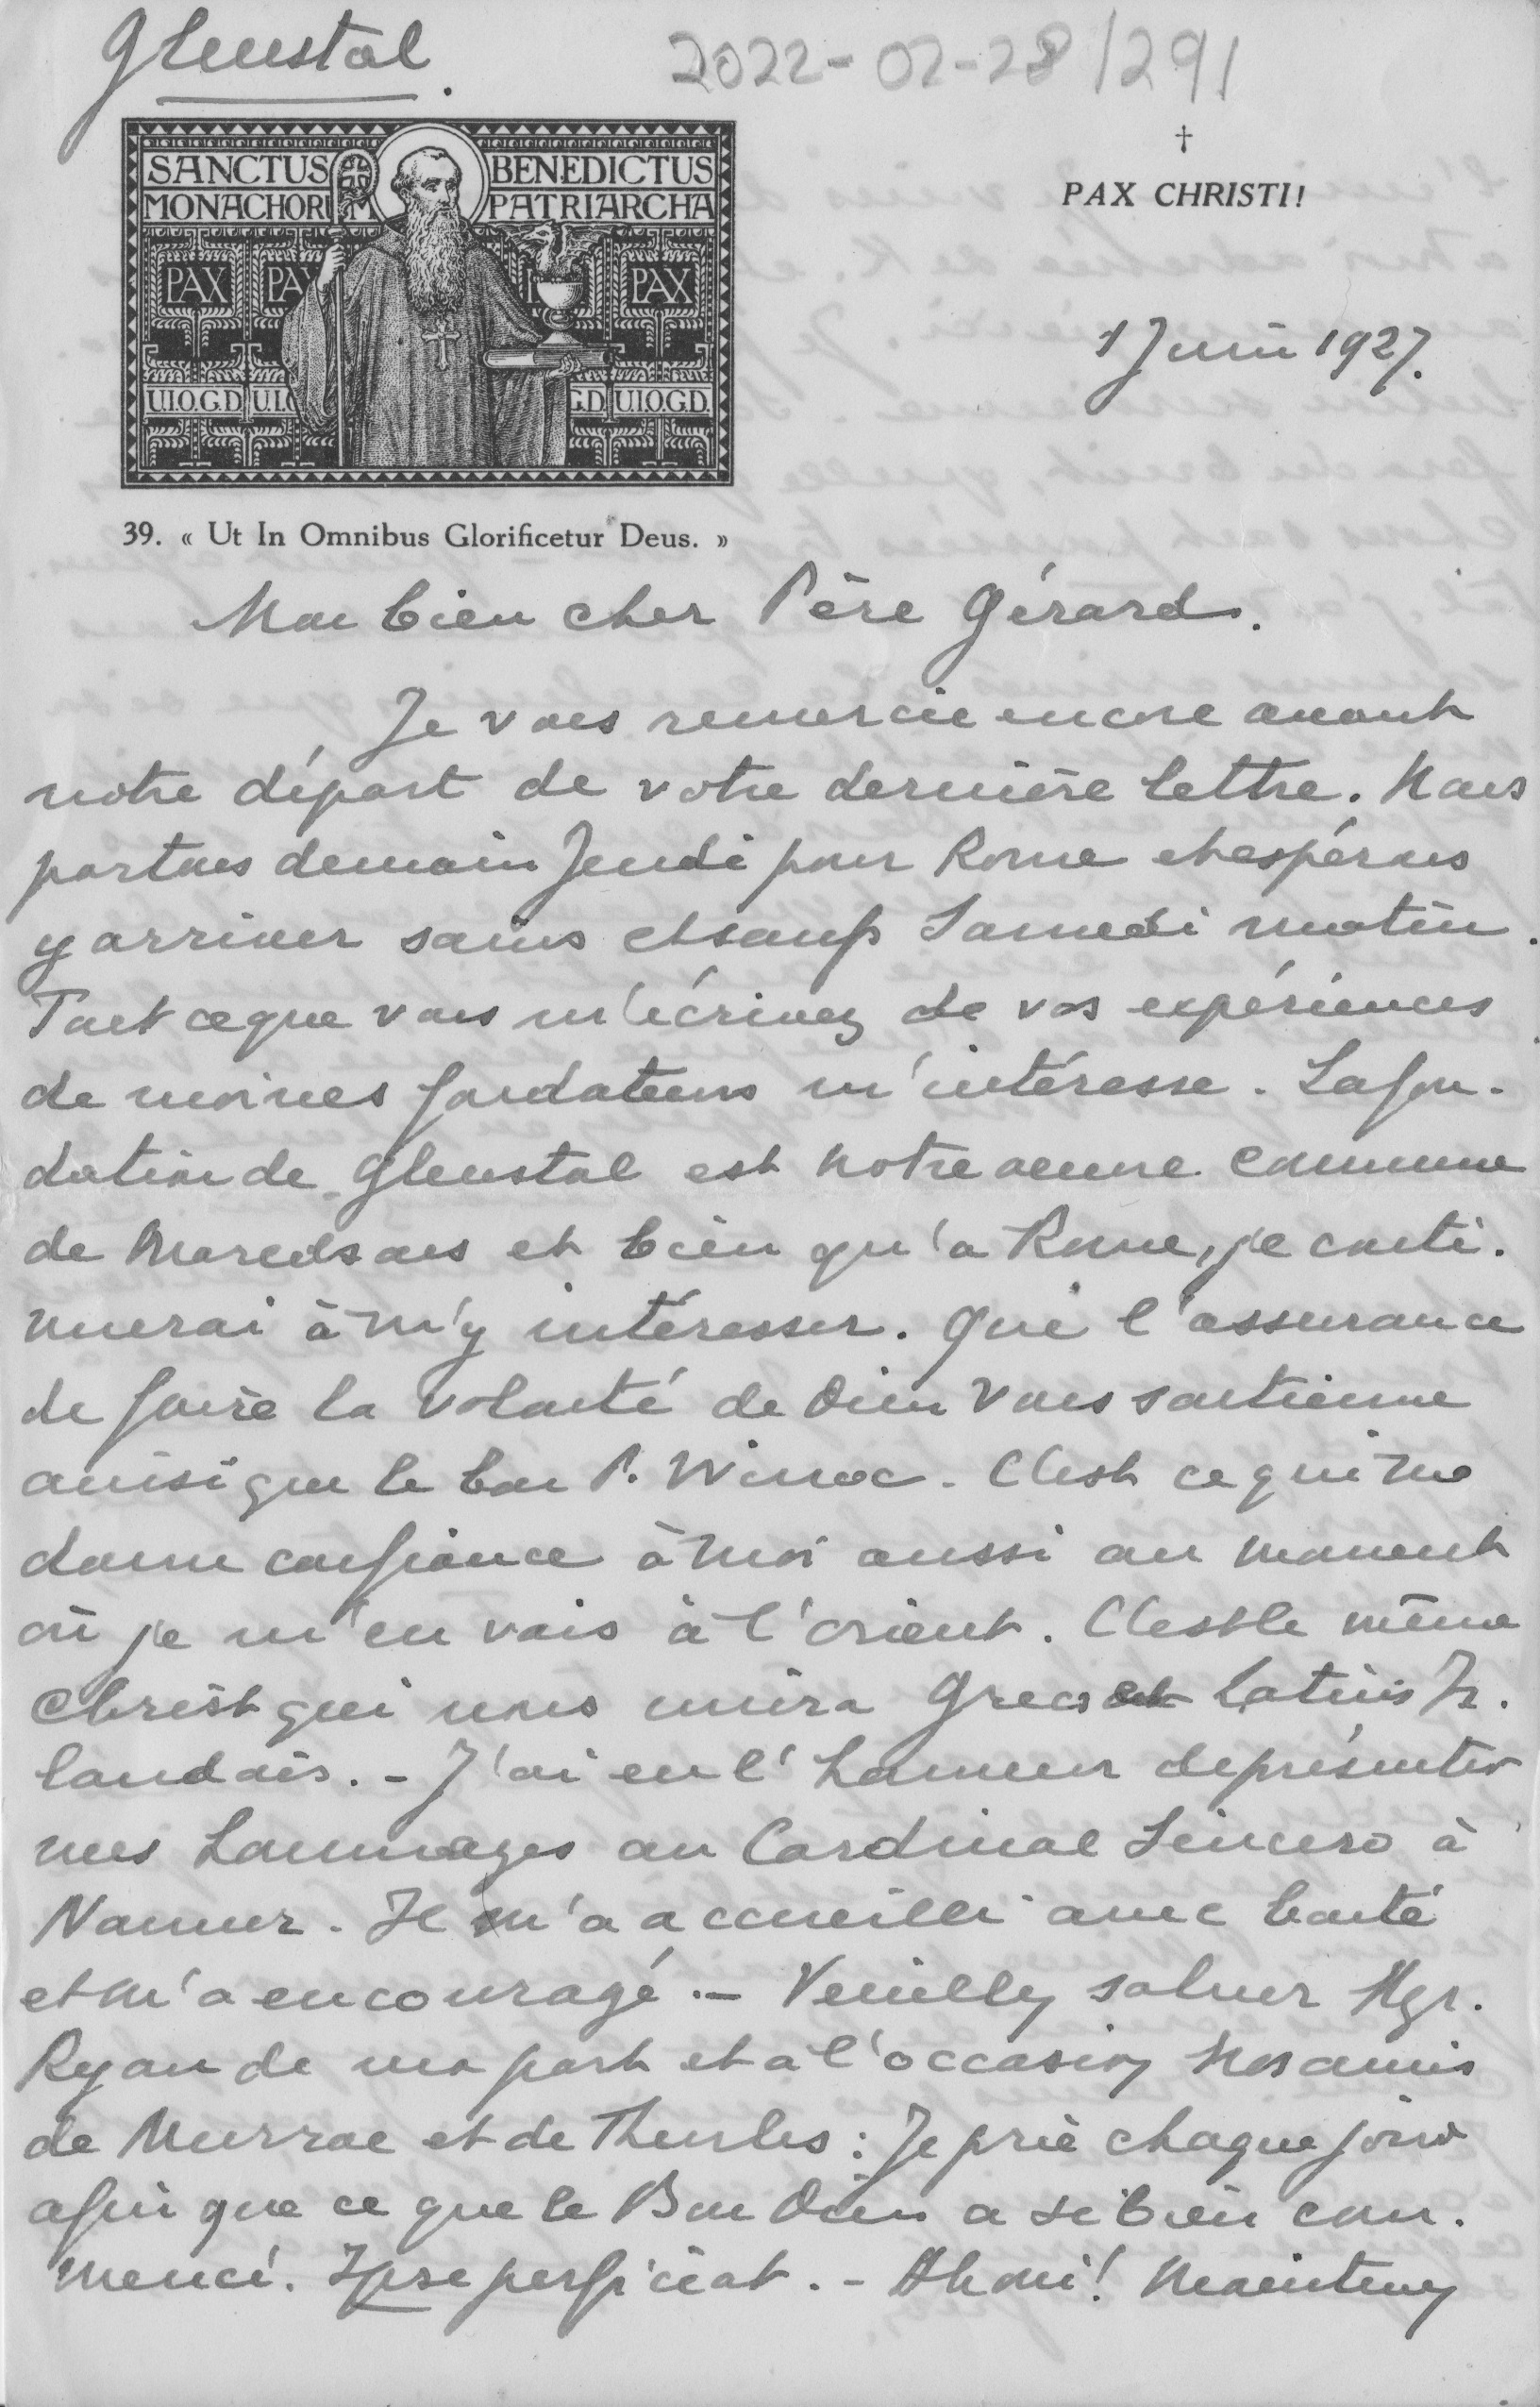 Glenstal.
2022-02-28/291
SANCTUS BENEDICTUS
MONACHORUM PATRIARCHA
PAX PAX PAX
U.I.O.G.D. U.I.O G.D. U.I.O.G.D.
39. « Ut In Omnibus Glorificetur Deus. »
†
PAX CHRISTI!
1 Juin 1927.
Mon bien cher Père Gérard.
Je vous remercie encore avant
notre départ de votre dernière lettre. Nous
partons demain Jeudi pour Rome et espérons
y arriver sains et saufs Samedi matin.
Tout ce que vous m'écrivez de vos expériences
de moines fondateurs m'intéresse. La fon-
dation de Glenstal est notre oeuvre commune
de Maredsous et bien qu'a Rome, je conti-
nuerai à m'y intéresser. Que l'assurance
de faire la volonté de Dieu vous soutienne
ainsi que le bon P. Winoc. C'est ce qui me
donne confiance à moi aussi au moment
où je m'en vais à l'orient. C'est le même
Christ qui nous unira Grecs et Latins Ir-
landais. - J'ai eu l'honneur de présenter
mes hommages au Cardinal Sincero à
Namur. Il m'a accueilli avec bonté
et m'a encouragé. - Veuillez saluer Mgr.
Ryan de ma part et à l'occasion nos amis
de Murroe et de Thurles: Je prie chaque jour
afin que ce que le Bon Dieu a si bien com-
mencé. Ipse perficiat. - Ah oui! Maintenez